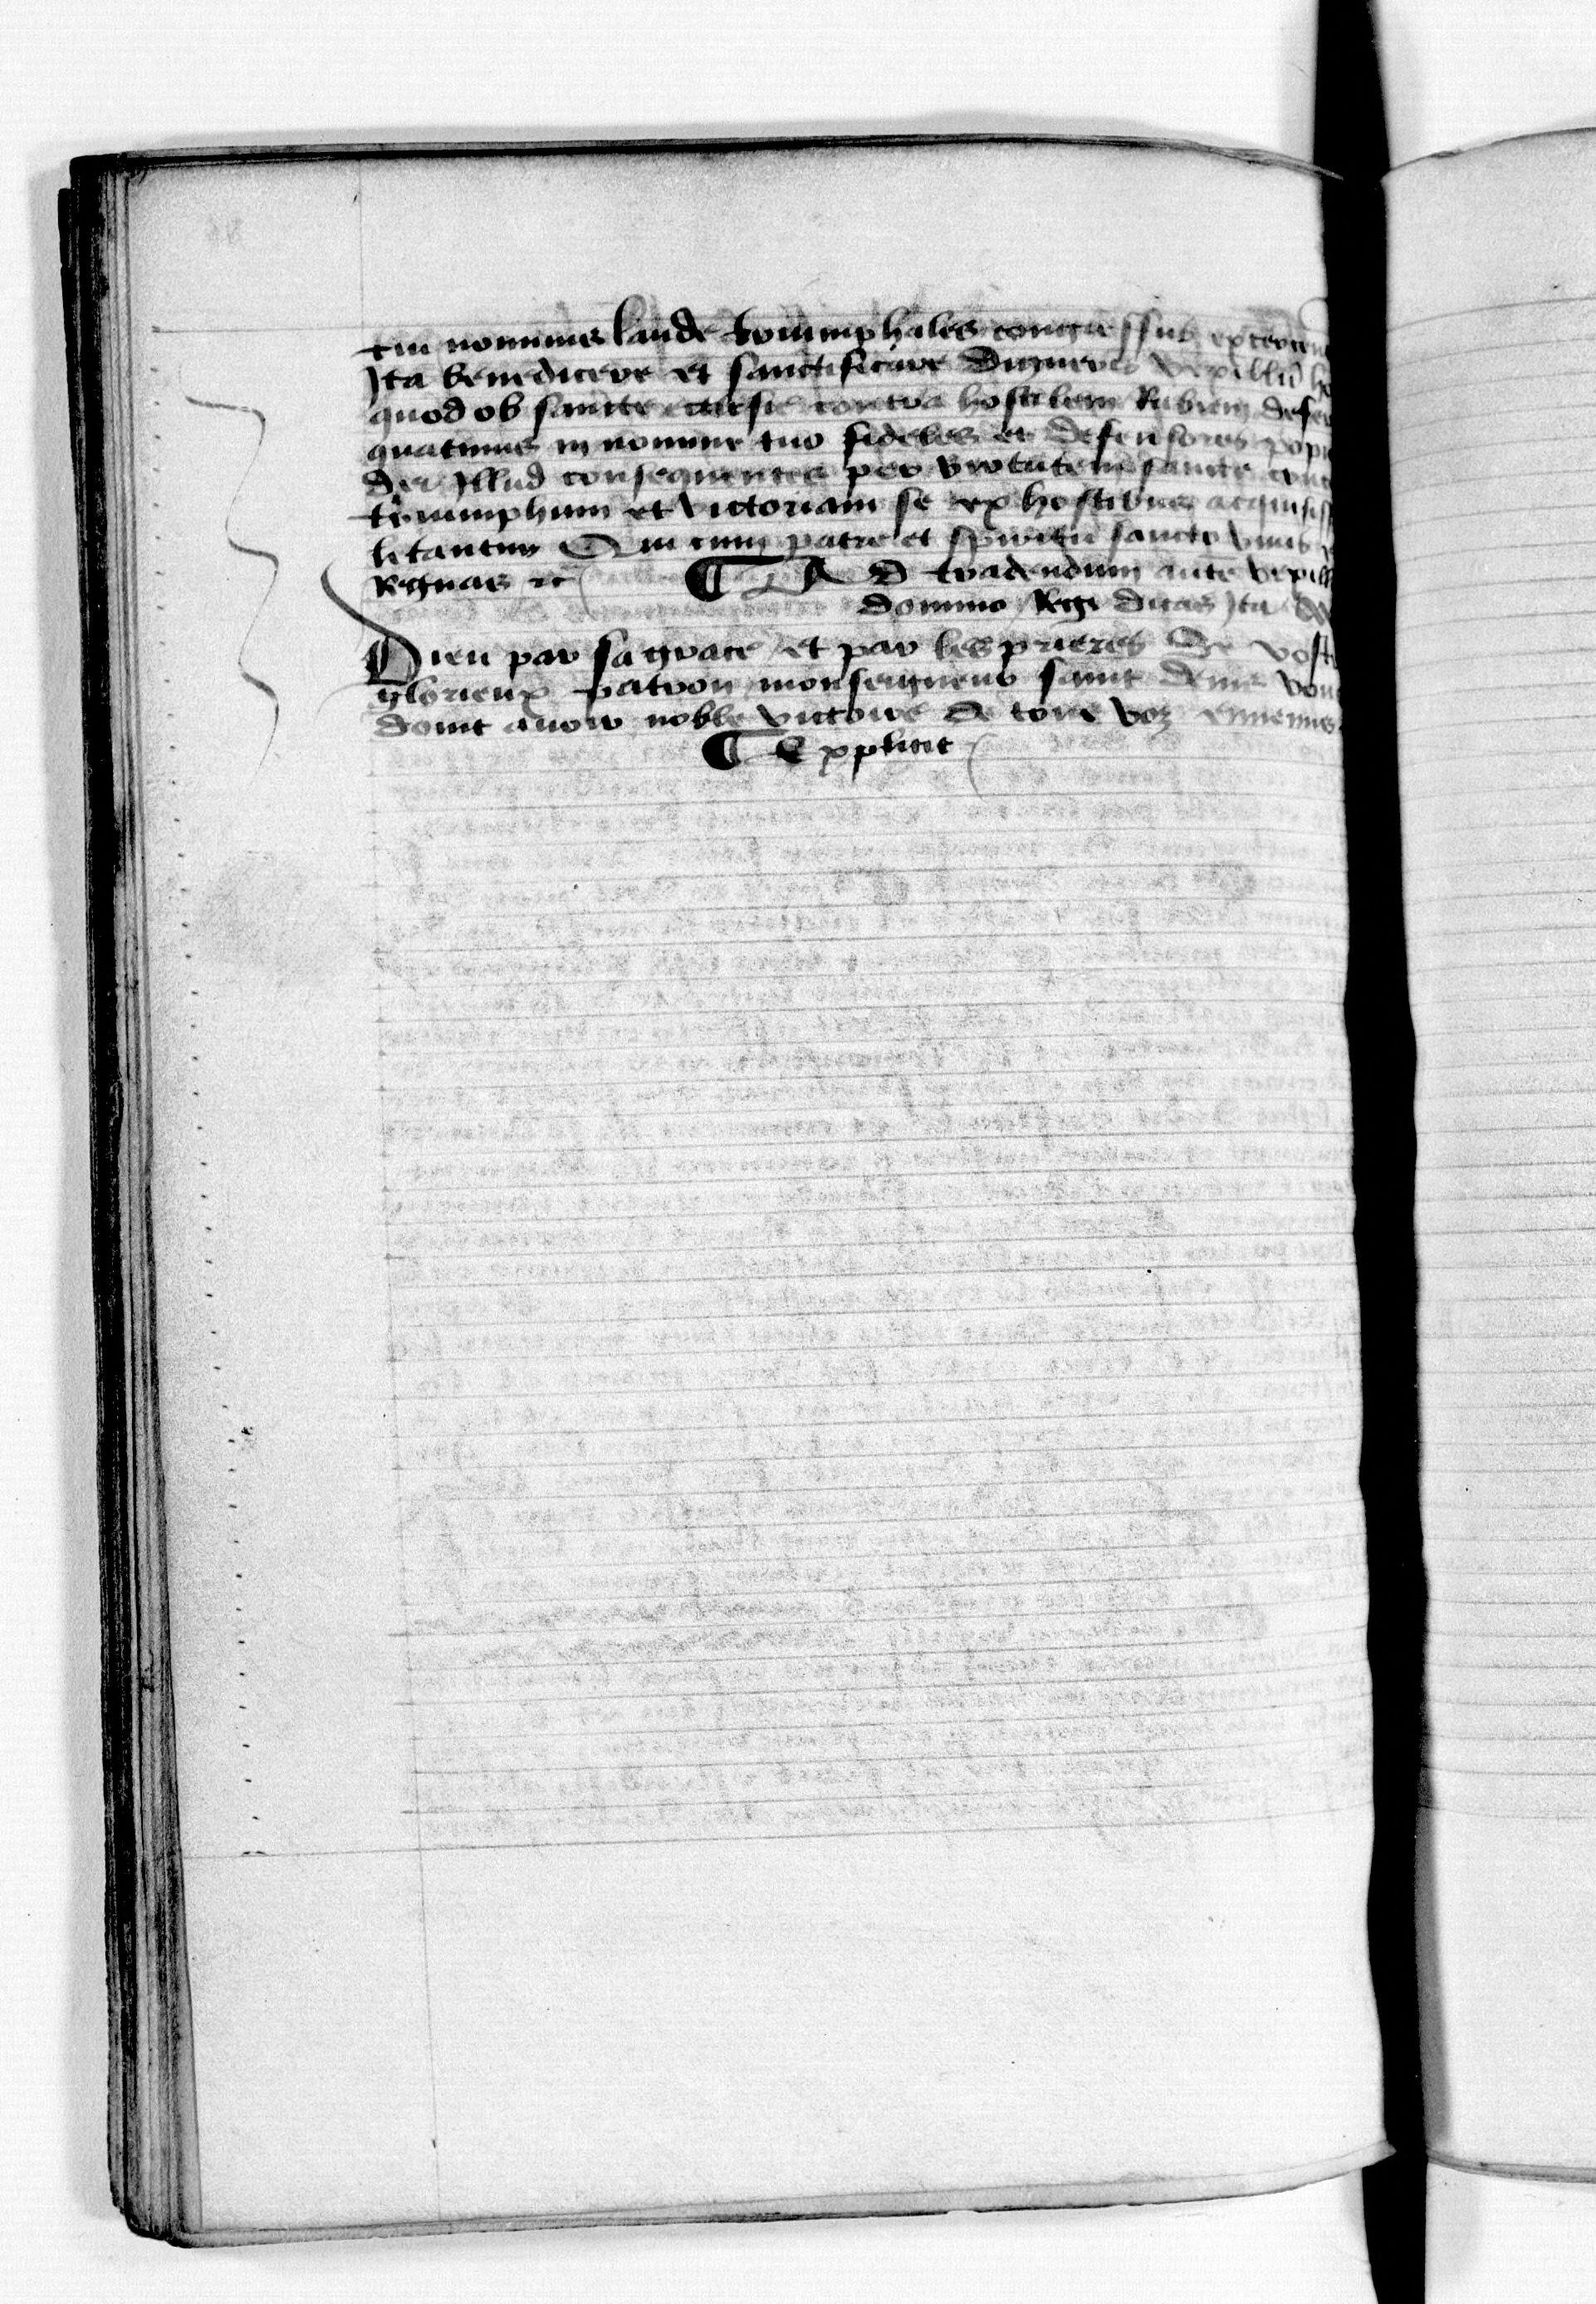 tui nominis laude triumphales congressus exercen
Ita benedicere et sanctificare digneris vexillu ho
quod ob sancte ecclesie contra hostilem Rabiem defer
quatinus in nomine tuo fideles et defensores popu
dei Illud consequentes per virtutem sancte cruc
triumphum et victoriam se ex hostibus acquisiss
letantur Qui cum patre et spiritu sancto viuis
Regnas et c Ad tradendum autem vexill
domino Regi dicas Ita
Dieu par sa grace et par les prieres de vost
glorieux patron monseigneur saint denis vous
doint auoir noble victoire de tous voz ennemis
Explicit